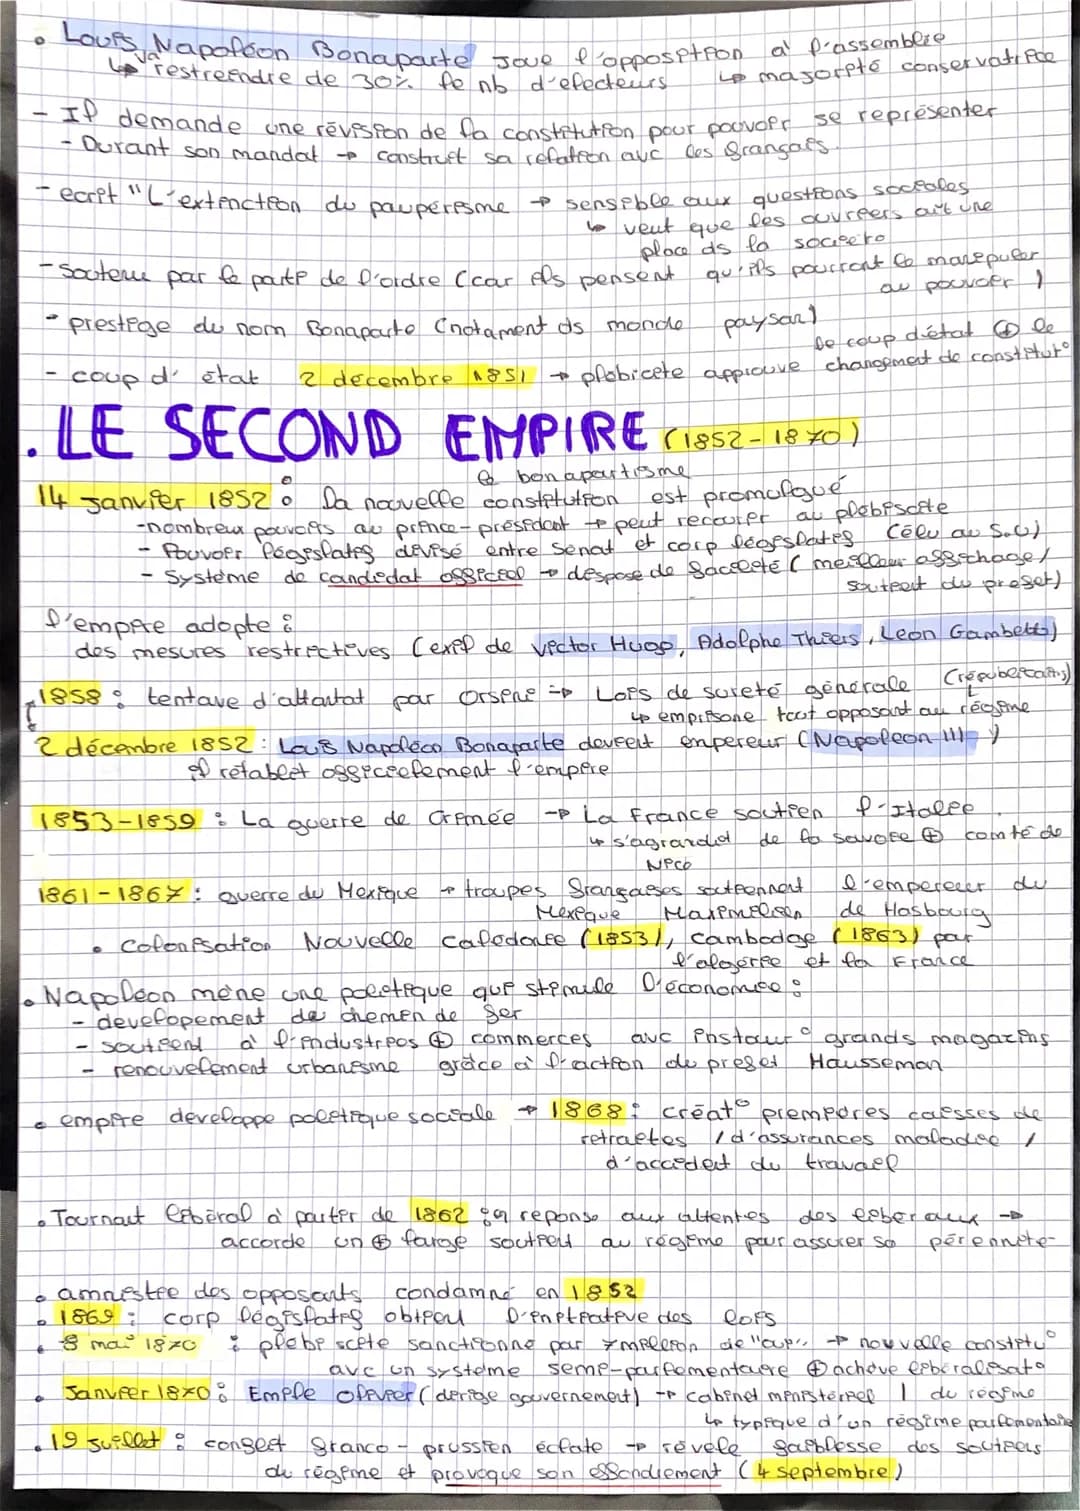 • Louis Napoléon Bonaparte joue l'opposition à l'assemblée
va
↳ restreindre de 30% le nb d'électeurs ↳ majorité conservatrice
- Il demande une révision de la constitution pour pouvoir se représenter
- Durant son mandat → construit sa relation avc les français
- ecrit "L'extinction du paupérisme → sensible aux questions sociales
↳ veut que les ouvriers ait une
place ds la société
- soutenu par le parti de l'ordre (car ils pensent qu'ils pourront le manipuler
au pouvoir)
- prestige du nom Bonaparte (notament ds monde paysan)
le coup d'état ⊕ le
- coup d'état 2 decembre 1851 → plébicete approuve changement de constitut°
. LE SECOND EMPIRE (1852-1870)
bonapartisme
14 janvier 1852 : la nouvelle constitution est promulgué
-nombreux pouvoirs au prince-président → peut recourir au plébiscite
- Pouvoir législatif divisé entre Senat et corp législatif (élu au S.U)
- Système de candidat officiel → dispose de facilité (meilleur affichage /
soutient du préfet)
l'empire adopte :
des mesures restrictives (exil de Victor Hugo, Adolphe Thiers, Leon Gambetta)
1858 : tentave d'attantat par Orsini → Lois de sureté générale (républicains)
↳ emprisone tout opposant au régime
2 décembre 1852 : Louis Napoléon Bonaparte devient empereur (Napoléon III)
il rétablit officiellement l'empire
1853-1859 : La guerre de Crimée → La France soutien l'Italie
↳ s'agrandit de la savoie ⊕ comté de
Nice
1861-1867 : guerre du Mexique → troupes françaises soutiennent l'empereur du
Mexique Maximilien de Hasbourg
• Colonisation Nouvelle Calédonie (1853), Cambodge (1863) par
l'algérie et la France
• Napoléon mène une politique qui stimule l'économie :
- developement de chemin de fer
- soutient à l'industries ⊕ commerces avc instaur° grands magazins
- renouvelement urbanisme grâce à l'action du prefet Hausseman
• empire developpe politique sociale → 1868 : créat° premières caisses de
retraites / d'assurances maladie /
d'accident du travail
• Tournant libéral à partir de 1862 en reponse aux attentes des liberaux →
accorde un ⊕ large soutient au régime pour assurer sa pérennité
• amnistie des opposants condamné en 1852
• 1869 : corp législatif obtient l'initiative des lois
• 8 mai 1870 : plebiscite sanctionne par 7 million de "oui" → nouvelle constitu°
avc un système semi-parlementaire ⊕ achève libéralisat°
• Janvier 1870 : Emile Olivier (dirige gouvernement) → cabinet ministériel du régime
↳ typique d'un régime parlementaire
• 19 juillet : conflit franco-prussien éclate → révèle faiblesse des soutiens
du régime et provoque son effondrement (4 septembre)